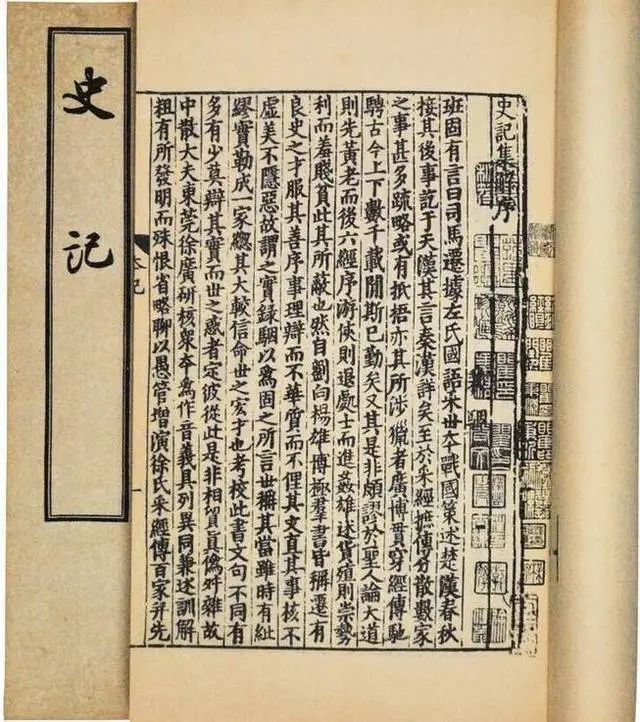 史記
史記集解序
班固有言曰司馬遷據左氏國語采丗本戰國策述楚漢春秋
接其後事訖于天漢其言秦漢詳矣至於采經摭傳分散數家
之事甚多疏略或有抵捂亦其所涉獵者廣博貫穿經傳馳
騁古今上下數千載閒斯已勤矣又其是非頗謬於聖人論大道
則先黃老而後六經序游俠則退處士而進姦雄述貨殖則崇勢
利而羞賤貧此其所蔽也然自劉向楊雄博極羣書皆稱遷有
良史之才服其善序事理辯而不華質而不俚其文直其事核不
虛美不隱惡故謂之實録駰以爲固之所言世稱其當雖時有紕
繆實勒成一家總其大較信命世之宏才也考校此書文句不同有
多有少莫辯其實而世之惑者定彼從此是非相貿眞僞舛雜故
中散大夫東莞徐廣研核衆本爲作音義具列異同兼述訓解
粗有所發明而殊恨省略聊以愚管增演徐氏采經傳百家并先
一